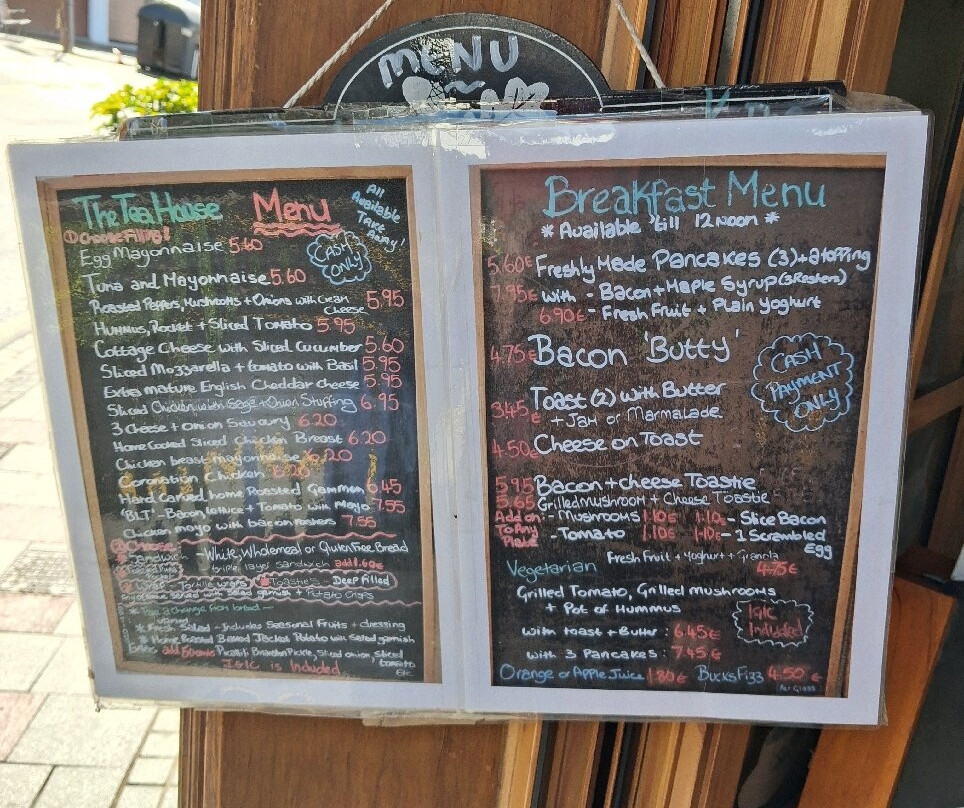 MENU
The Tea House Menu
All Available Take Away!
① Choose Filling!
CASH ONLY
Egg Mayonnaise 5.60
Tuna and Mayonnaise 5.60
Roasted Peppers, Mushrooms + Onions with Cream Cheese 5.95
Hummus, Rocket + Sliced Tomato 5.95
Cottage Cheese with Sliced Cucumber 5.60
Sliced Mozzarella + tomato with Basil 5.95
Extra mature English Cheddar cheese 5.95
Sliced Chicken with Sage + Onion Stuffing 6.95
3 Cheese + Onion Savoury 6.20
Home Cooked Sliced Chicken Breast 6.20
Chicken breast mayonnaise 6.20
Coronation Chicken 6.20
Hand Carved home Roasted Gammon 6.45
'BLT' - Bacon lettuce + Tomato with Mayo 7.55
Chicken mayo with bacon rashers 7.55
② Choose
Sandwich - White, Wholemeal or Gluten Free Bread
triple layer sandwich add 1.60€
Tortilla wraps Toasties - Deep Filled
served with Salad garnish + Potato Crisps
a change from bread -
* Fresh Salad - Includes Seasonal Fruits + dressing
* Home Roasted Baked Jacket Potato with Salad garnish
Extras add 50cents Branston Pickle, Sliced onion, Sliced tomato etc
IGIC is Included
Breakfast Menu
* Available 'till 12 noon *
5.60€ Freshly Made Pancakes (3) + a topping
7.95€ with - Bacon + Maple Syrup (3 Rashers)
6.90€ - Fresh Fruit + Plain Yoghurt
4.75€ Bacon 'Butty'
CASH PAYMENT ONLY
3.45€ Toast (2) with Butter
+ Jam or Marmalade.
4.50€ Cheese on Toast
5.95 Bacon + cheese Toastie
5.65 Grilled mushroom + Cheese Toastie
Add on: - Mushrooms 1.10€ 1.10€ - Slice Bacon
To Any Plate - Tomato 1.10€ 1.10€ - 1 Scrambled Egg
Fresh Fruit + Yoghurt + Granola
Vegetarian 4.75€
Grilled Tomato, Grilled mushrooms
+ Pot of Hummus
IGIC Included
with toast + Butter: 6.45€
with 3 Pancakes: 7.45€
Orange or Apple Juice 1.80€ Bucks Fizz 4.50€
Per Glass